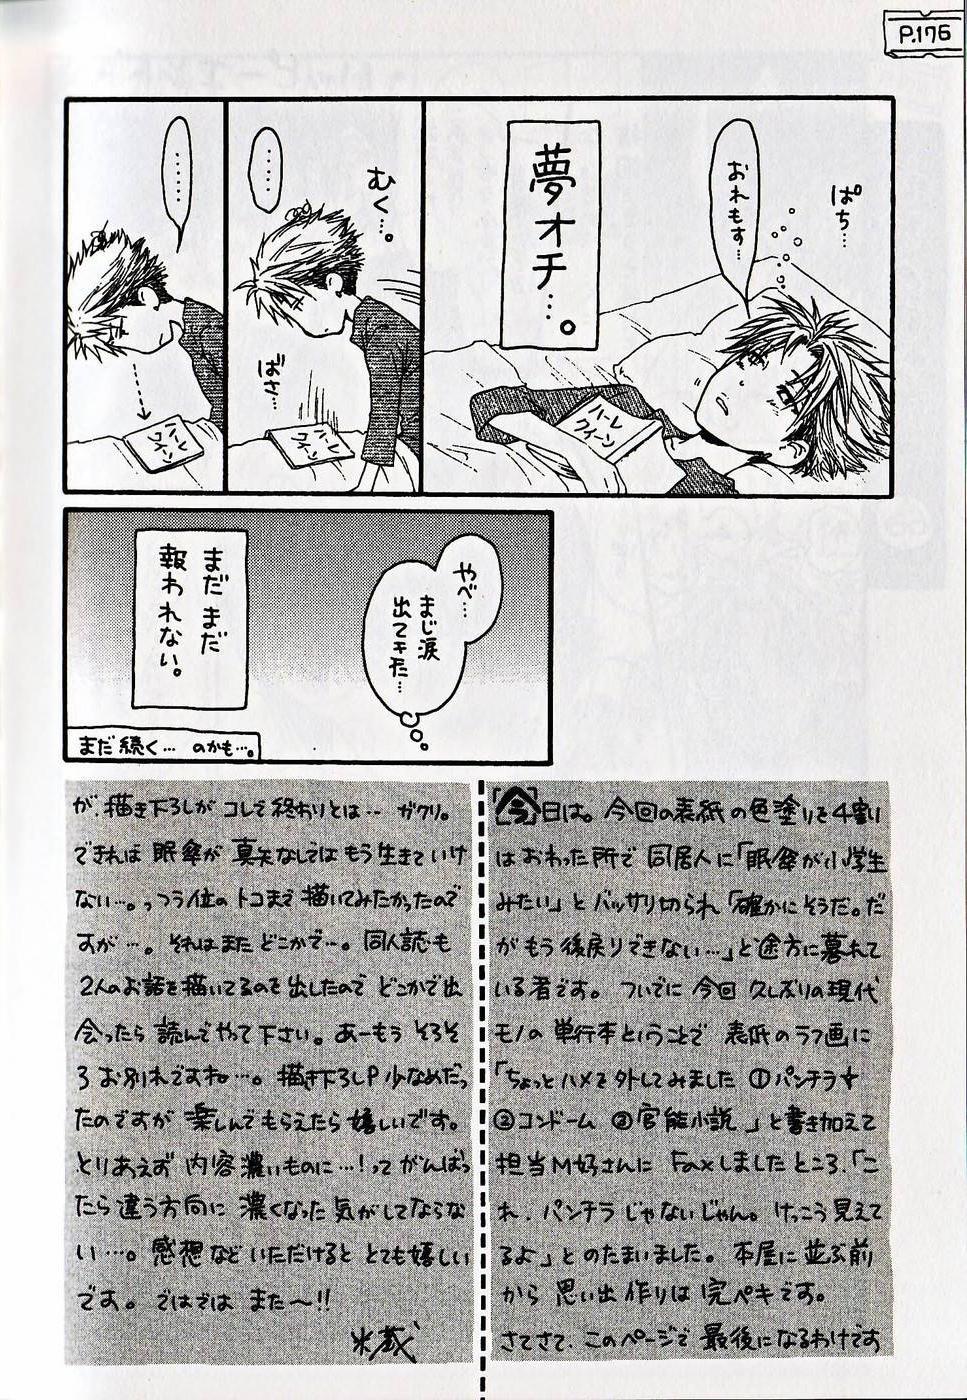 P.176
ぱち…
おれもす…
夢オチ…。
ハーレ
クイーン
むく…。
……
ばさ…
ハーレ
クイーン
……
ハーレ
クイーン
やべ…
まじ涙
出てキた…
まだまだ
報われない。
まだ続く… のかも…。
「今」日は。今回の表紙の色塗りを4割り
はおわった所で 同居人に「眠傘が小学生
みたい」とバッサリ切られ「確かにそうだ。だ
がもう後戻りできない…」と途方に暮れて
いる者です。ついでに今回 久しぶりの現代
モノの単行本ということで 表紙のラフ画に
「ちょっとハメを外してみました ①パンチラ
②コンドーム ③官能小説」と書き加えて
担当M好さんに Faxしましたところ、「こ
れ、パンチラじゃないじゃん。けっこう見えて
るよ」とのたまいました。本屋に並ぶ前
から 思い出作りは完ペキです。
さてさて、このページで 最後になるわけです
が、描き下ろしが コレで終わりとは… ガクリ。
できれば 眠傘が 真矢なしではもう生きていけ
ない…。っつう位の トコまで描いてみたかったので
すが…。それはまたどこかで…。同人誌も
2人のお話を描いてるのを出したので どこかで出
会ったら 読んでやって下さい。あーもう そろそ
ろお別れですね…。描き下ろしP少なめだっ
たのですが 楽しんでもらえたら嬉しいです。
とりあえず 内容濃いものに…!ってがんばっ
たら違う方向に 濃くなった気がしてならな
い…。感想などいただけると とても嬉しい
です。ではでは また〜!!
米蔵